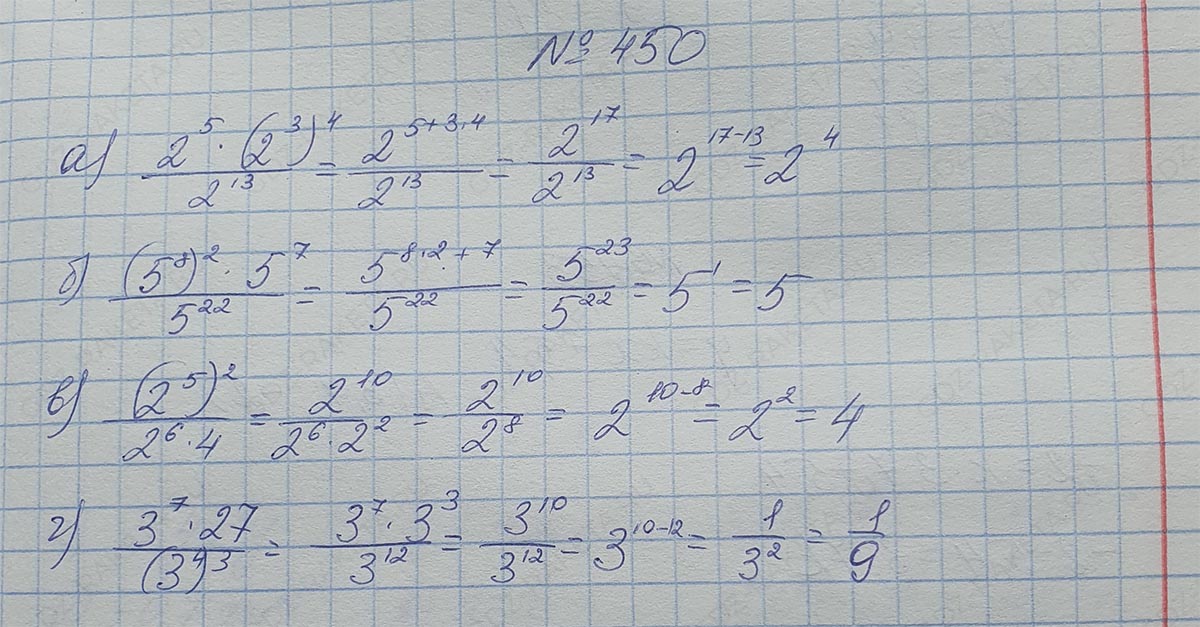 № 450
а) \frac{2^5 · (2^3)^4}{2^{13}} = \frac{2^{5+3·4}}{2^{13}} = \frac{2^{17}}{2^{13}} = 2^{17-13} = 2^4
б) \frac{(5^8)^2 · 5^7}{5^{22}} = \frac{5^{8·2+7}}{5^{22}} = \frac{5^{23}}{5^{22}} = 5^1 = 5
в) \frac{(2^5)^2}{2^6 · 4} = \frac{2^{10}}{2^6 · 2^2} = \frac{2^{10}}{2^8} = 2^{10-8} = 2^2 = 4
г) \frac{3^7 · 27}{(3^4)^3} = \frac{3^7 · 3^3}{3^{12}} = \frac{3^{10}}{3^{12}} = 3^{10-12} = \frac{1}{3^2} = \frac{1}{9}